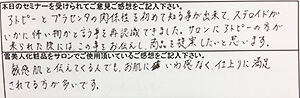 本日のセミナーを受けられてご感想をご記入下さい。
アトピーとプラセンタの関係性を初めて知る事が出来て、ステロイドが
いかに怖い物かと言う事を再認識できました。サロンにアトピーの方が
来られた際には、この事をお伝えし商品を提案したいと思います。
雪美人化粧品をサロンでご使用頂いている感想をご記入下さい。
敏感肌と伝えてくる人でも、お肌に 感なく、仕上りに満足
されてる方が多いです。